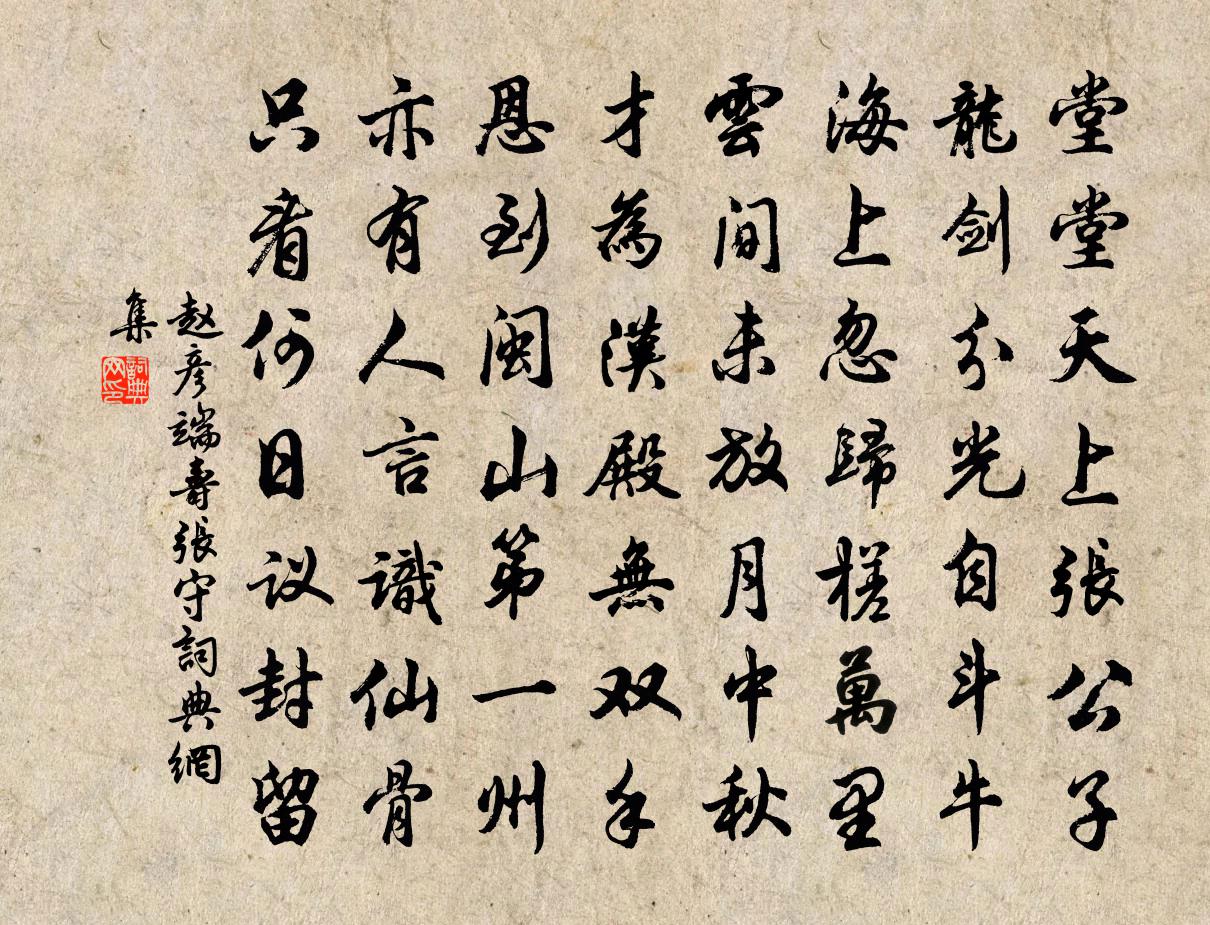 堂堂天上張公子
龍劍分光自斗牛
海上忽歸槎萬里
雲間未放月中秋
才為漢殿無双手
恩到閩山第一州
亦有人言識仙骨
只看何日议封留
赵彦端壽張守詞典網
集
詞典網印